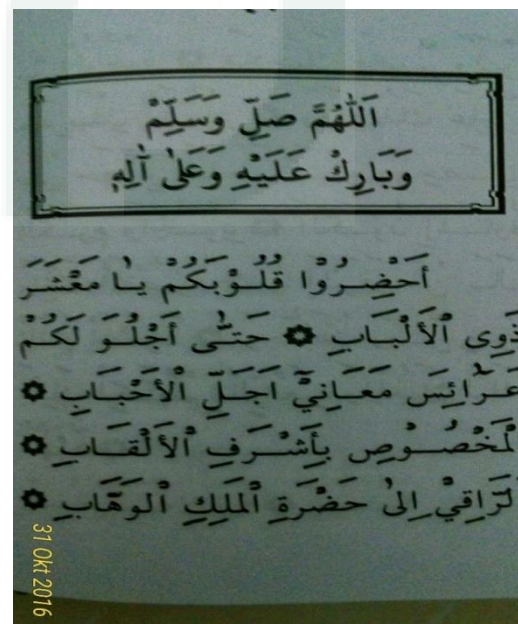 اَللّٰهُمَّ صَلِّ وَسَلِّمْ
وَبَارِكْ عَلَيْهِ وَعَلٰى آلِهِ
أَحْضِرُوْا قُلُوْبَكُمْ يَا مَعْشَرَ
ذَوِى اْلأَلْبَابِ ۞ حَتّٰى أَجْلُوَ لَكُمْ
عَرَائِسَ مَعَانِيْ اَجَلِّ اْلأَحْبَابِ ۞
اْلمَخْصُوْصِ بِأَشْرَفِ اْلأَلْقَابِ ۞
الرَّاقِيْ اِلىٰ حَضْرَةِ اْلمَلِكِ اْلوَهَّابِ ۞
31 Okt 2016